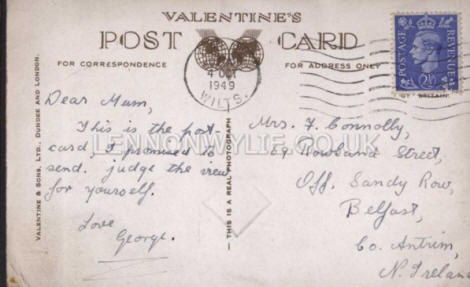 VALENTINE'S
POST CARD
FOR CORRESPONDENCE
FOR ADDRESS ONLY
4 OCT
1949
WILTS.
POSTAGE
REVENUE
2½D
Dear Mum,
This is the post
card, I promised to
send. judge the view
for yourself.
Love
George.
Mrs. F. Connolly,
Rowland Street,
Off. Sandy Row,
Belfast,
Co. Antrim,
N. Ireland
VALENTINE & SONS. LTD., DUNDEE AND LONDON.
— THIS IS A REAL PHOTOGRAPH
BRITAIN
LENNONWYLIE.CO.UK